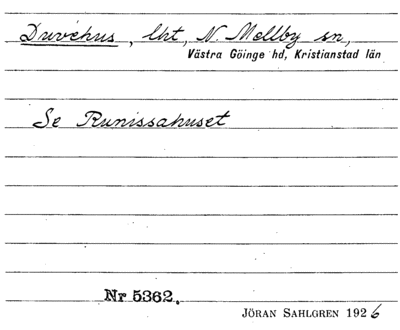 Druvehus, lht, N. Mellby sn,
Västra Göinge hd, Kristianstad län
Se Runissahuset
Nr 5362.
JÖRAN SAHLGREN 1926